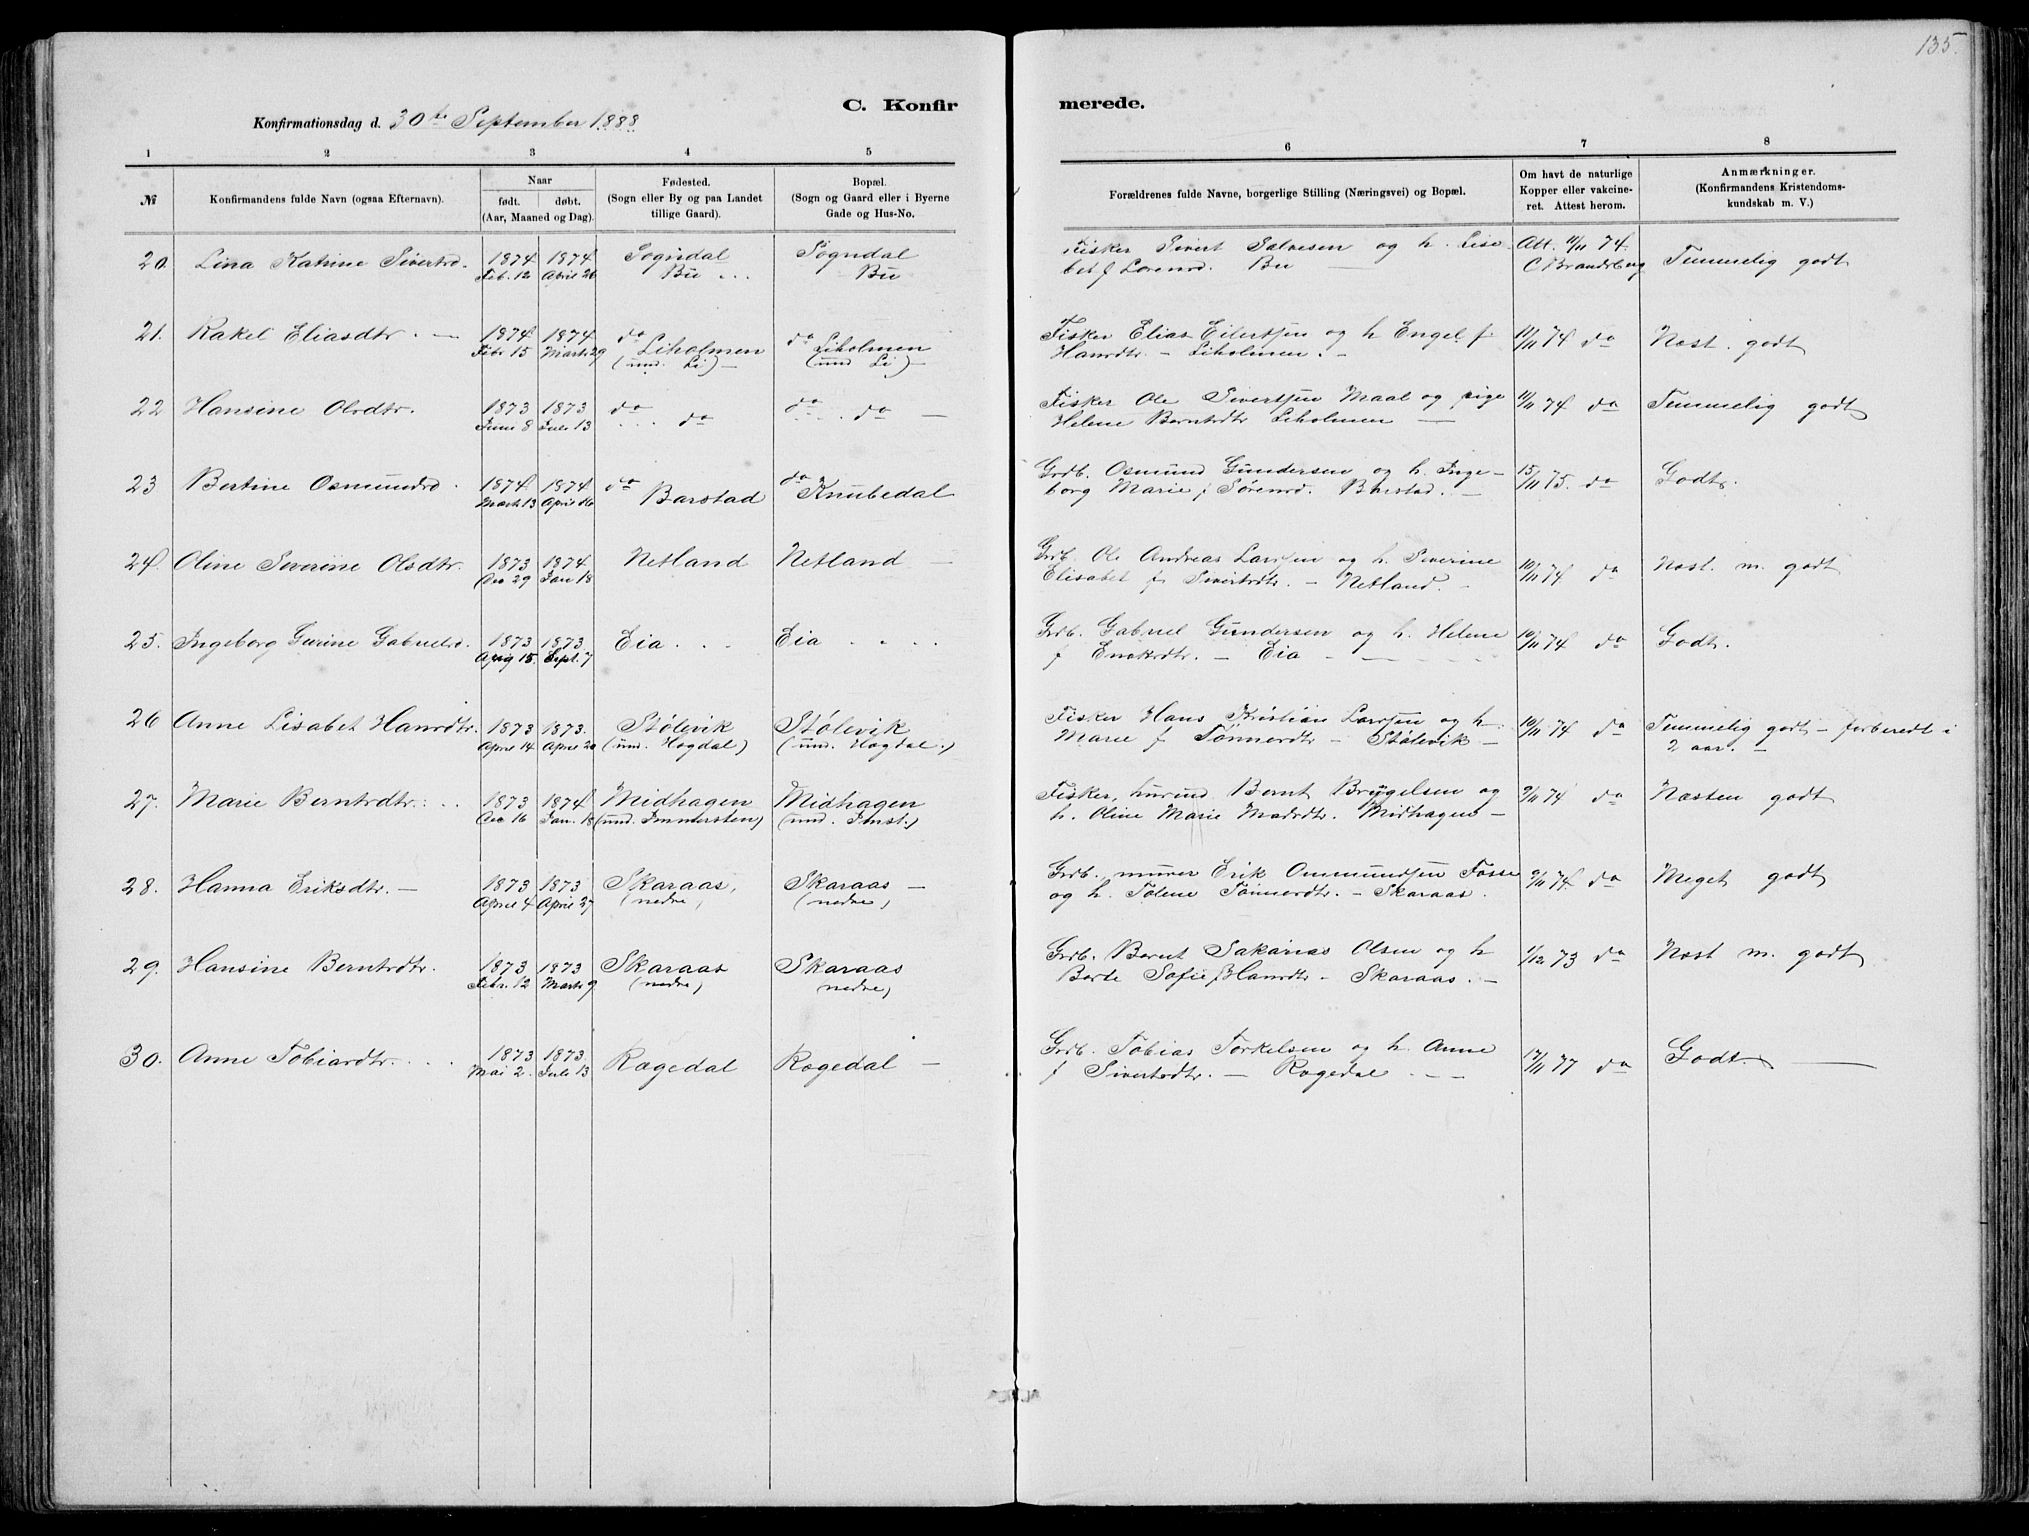 135.
C. Konfirmerede.
Konfirmationsdag d. 30te September 1888
1 2 3 4 5 6 7 8
№
Konfirmandens fulde Navn (ogsaa Efternavn).
Naar
født. døbt.
(Aar, Maaned og Dag).
Fødested.
(Sogn eller By og paa Landet
tillige Gaard).
Bopæl.
(Sogn og Gaard eller i Byerne
Gade og Hus-No.
Forældrenes fulde Navne, borgerlige Stilling (Næringsvei) og Bopæl.
Om havt de naturlige
Kopper eller vakcine-
ret. Attest herom.
Anmærkninger.
(Konfirmandens Kristendoms-
kundskab m. V.)
20. Lina Katrine Sivertsd. 1874 1874 Sogndal Sogndal Fisker Sivert Salvesen og h. Lise- Att. 11/11 74. Temmelig godt
Feb. 12 April 26 Bu Bu bet f Lorensd. Bu — C Brandsberg
21. Rakel Eliasdtr. — 1874 1874 do Liholmen do Liholmen Fisker Elias Eilertsen og h Engel f 11/11 74 do Næst. godt
Febr 15 Marts 29 (und. Li) — (und Li) — Hansdtr. — Liholmen. —
22 Hansine Olsdtr. 1873 1873 do do do do — Fisker Ole Sivertsen Maal og pige 11/11 74 do Temmelig godt
Juni 8 Juli 13 Helene Berntsdtr Liholmen —
23 Bertine Osmundsd. 1874 1874 do Barstad do Knubedal Grdb. Osmund Gundersen og h. Inge- 15/11 75. do Godt.
Marts 13 April 16 borg Marie f Sørensd. Barstad. —
24. Oline Severine Olsdtr. 1873 1874 Netland Netland — Grdb. Ole Andreas Larssen og h. Siverine 10/11 74 do Næst. m. godt
Dec 29 Jan 18 Elisabet f Sivertsdtr. — Netland. —
25. Ingeborg Gurine Gabrielsd. 1873 1873 Eia Eia Grdb. Gabriel Gundersen og h. Helene 10/11 74 do Godt.
Aug 15. Sept. 7 f Enoksdtr. — Eia —
26 Anne Lisabet Hansdtr. 1873 1873. Stølevik Stølevik Fisker Hans Kristian Larssen og h. 10/11 74 do Temmelig godt — forberedt i
April 14 April 20 (und. Hogdal) (und. Hogdal.) Marie f Tønnesdtr — Stølevik — 2 aar. —
27. Marie Berntsdtr. 1873 1874 Midhagen Midhagen Fisker, husmd Bernt Brygelsen og 9/11 74 do Næsten godt
Dec 16 Jan. 18 (und. Immersten) (und. Imst.) h. Oline Marie Madsdtr. Midhagen —
28. Hanna Eriksdtr. — 1873 1873 Skaraas, Skaraas — Grdb. murer Erik Ommundsen Fosse 9/11 74 do Meget godt
April 4 April 27 (nedre) (nedre) og h. Tolene Tønnesdtr. — Skaraas.
29. Hansine Berntsdtr. 1873 1873 Skaraas Skaraas Grdb. Bernt Sakarias Olsen og h 1/12 73 do Næst m. godt
Febr. 12 Marts 9 (nedre) nedre) Berte Sofie f Hansdtr — Skaraas. —
30. Anne Tobiasdtr. 1873 1873. Rægedal Rægedal — Grdb. Tobias Torkelsen og h. Anne 17/11 77 do Godt. —
Mai 2. Juli 13 f Sivertsdtr. — Rægedal —